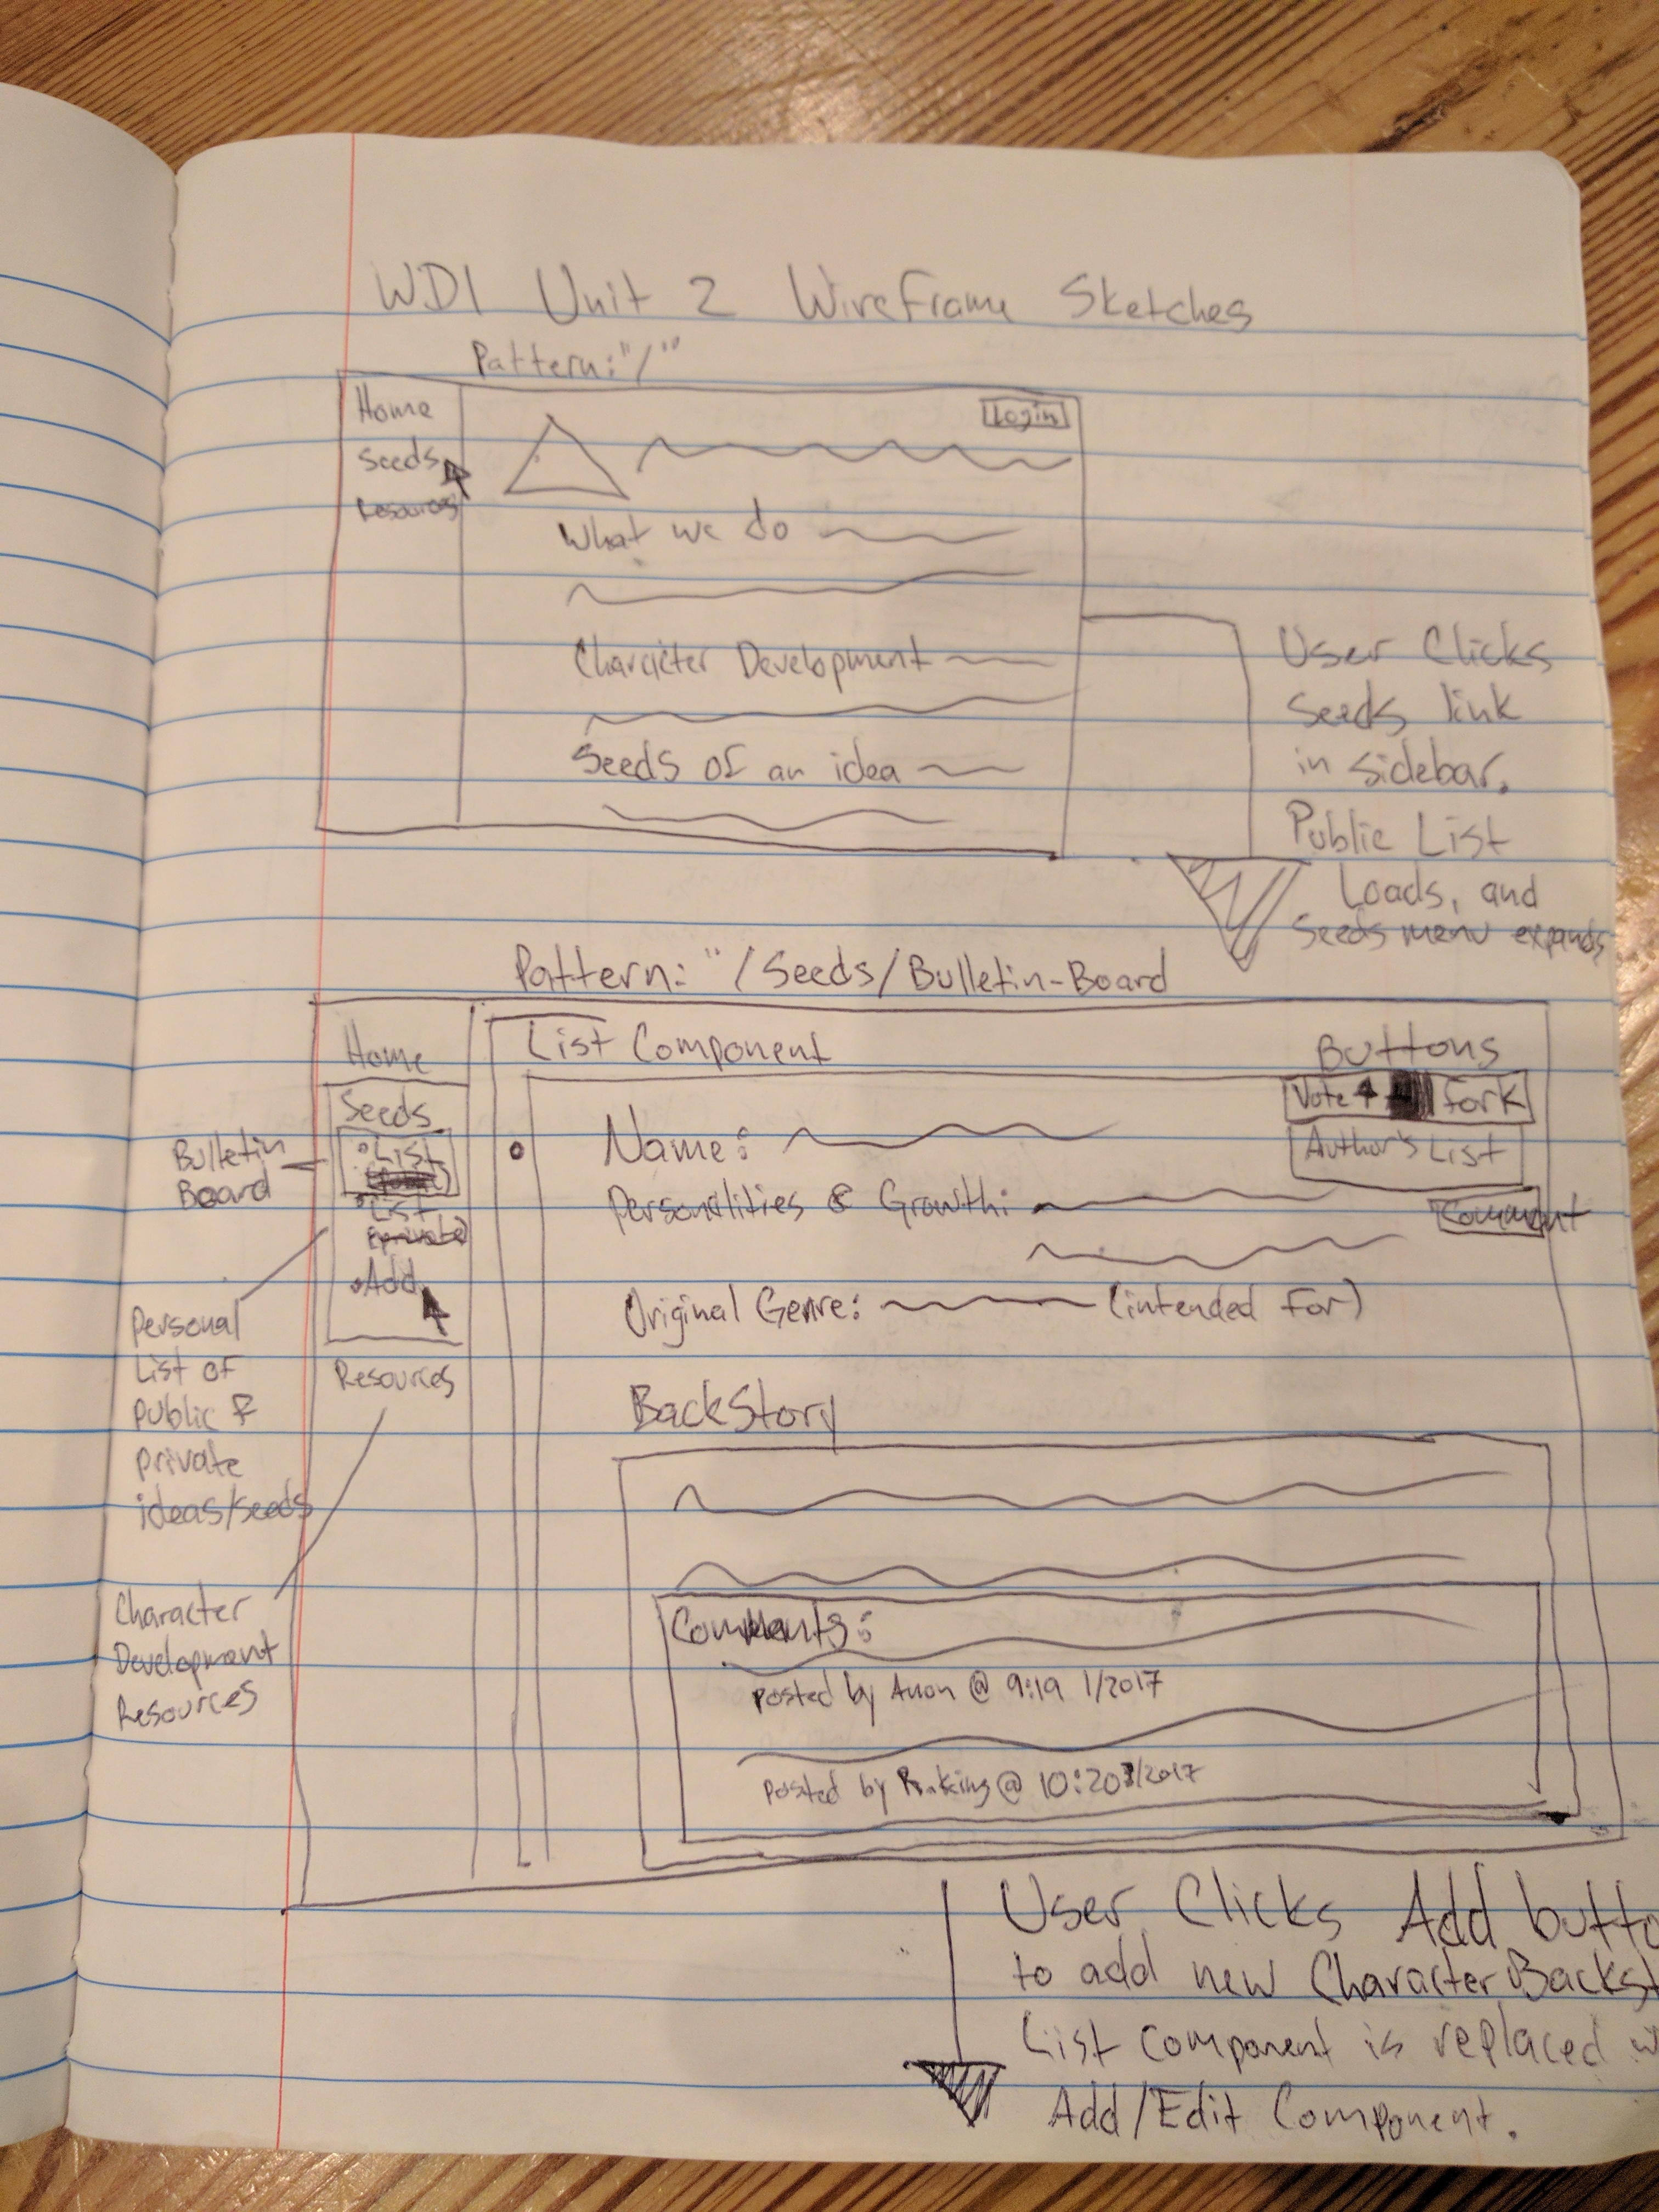 WDI Unit 2 WireFrame Sketches
Pattern: "/"
Home
Seeds
Resources
Login
What we do
Character Development
Seeds of an idea
User Clicks
Seeds link
in sidebar.
Public List
Loads, and
Seeds menu expands
Pattern: "/Seeds/Bulletin-Board
Home
Seeds
List
List
(private)
Add
Resources
Bulletin
Board
Personal
List of
Public &
private
ideas/seeds
Character
Development
Resources
List Component
Buttons
Vote
fork
Author's List
Comment
Name:
Personalities & Growth:
Original Genre: (intended for)
BackStory
Comments:
Posted by Anon @ 9:19 1/2017
Posted by @ 10:20 /2017
User Clicks Add butto
to add new Character Backst
List Component is replaced w
Add/Edit Component.